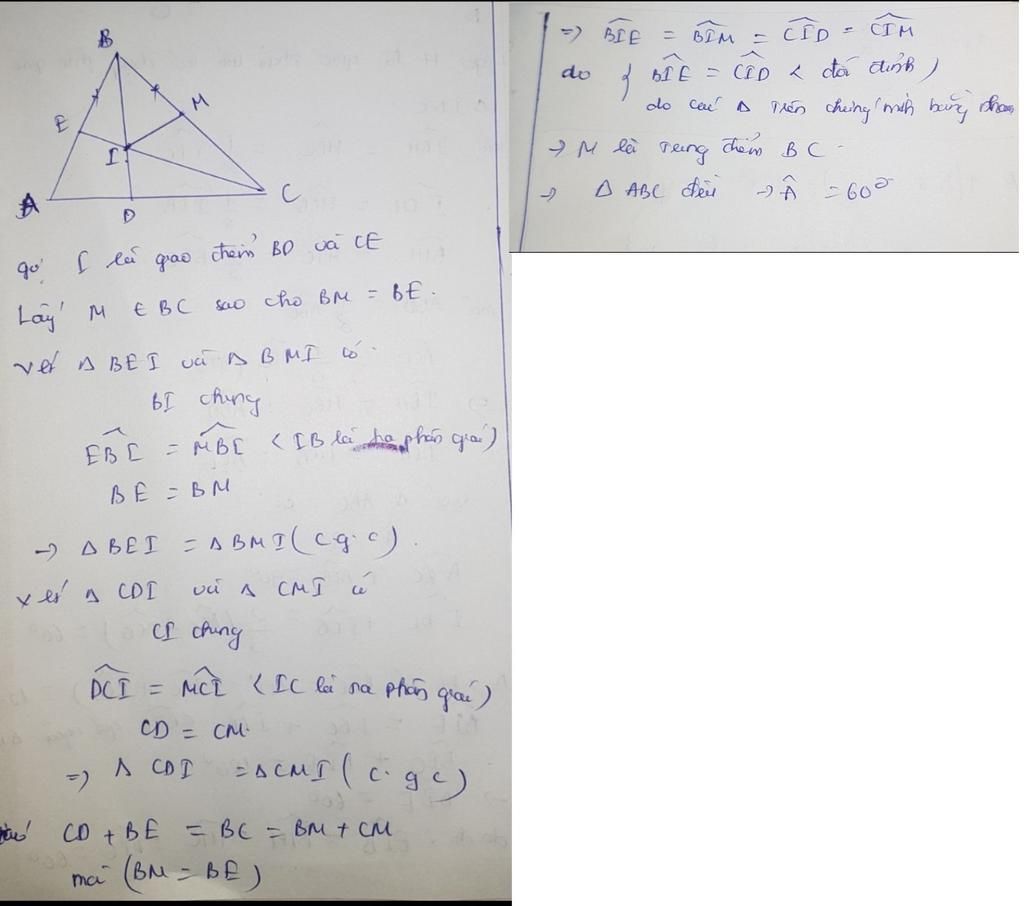 B
E
M
I
A
D
C
gọi I là giao điểm BD và CE
Lấy M ∈ BC sao cho BM = BE.
xét Δ BEI và Δ BMI có
BI chung
EBI = MBI (IB là tia phân giác)
BE = BM
→ Δ BEI = Δ BMI (c.g.c).
xét Δ CDI và Δ CMI có
CI chung
DCI = MCI (IC là tia phân giác)
CD = CM.
=> Δ CDI = Δ CMI (c.g c)
CD + BE = BC = BM + CM
mà (BM = BE)
=> BIE = BIM = CID = CIM
do { BIE = CID < đối đỉnh)
do các Δ trên chứng minh bằng nhau
→ M là trung điểm BC.
→ Δ ABC đều → Â = 60°